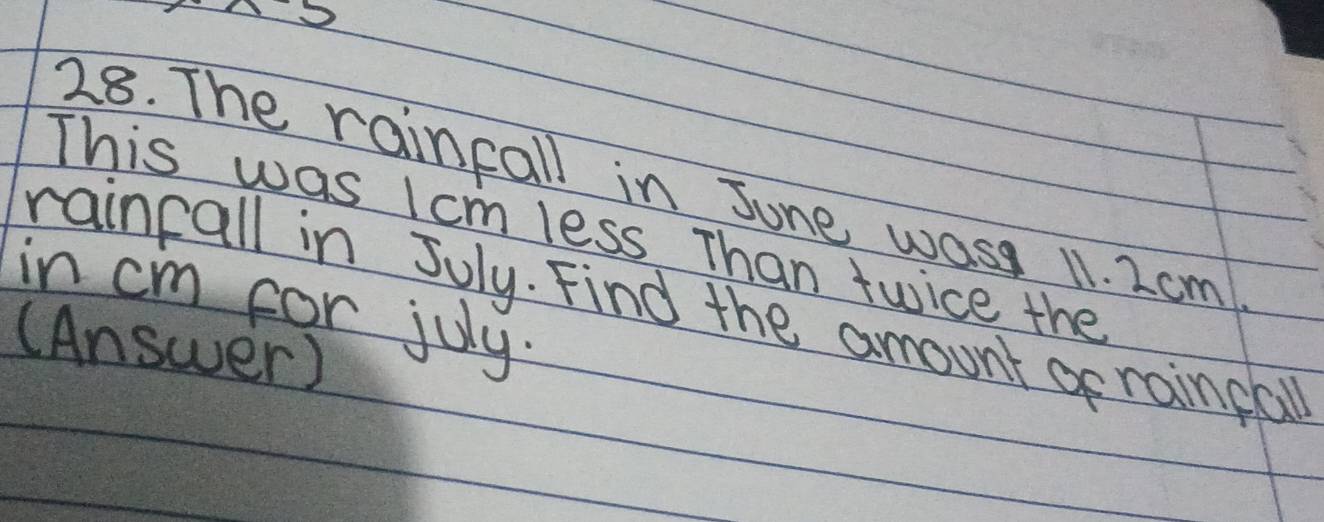 28. The rainfall in June was 11.2cm.
This was 1cm less Than twice the
rainfall in July. Find the amount of rainfall
in cm for july.
(Answer)